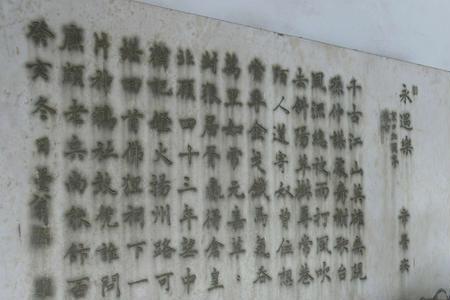 永遇樂 辛棄疾
千古江山英雄無覓
孫仲謀處舞榭歌台
風流總被雨打風吹
去斜陽草樹尋常巷
陌人道寄奴曾住想
當年金戈鐵馬氣吞
萬里如虎元嘉草草
封狼居胥贏得倉皇
北顧四十三年望中
猶記烽火揚州路可
堪回首佛狸祠下一
片神鴉社鼓憑誰問
廉頗老矣尚能飯否
癸亥冬日